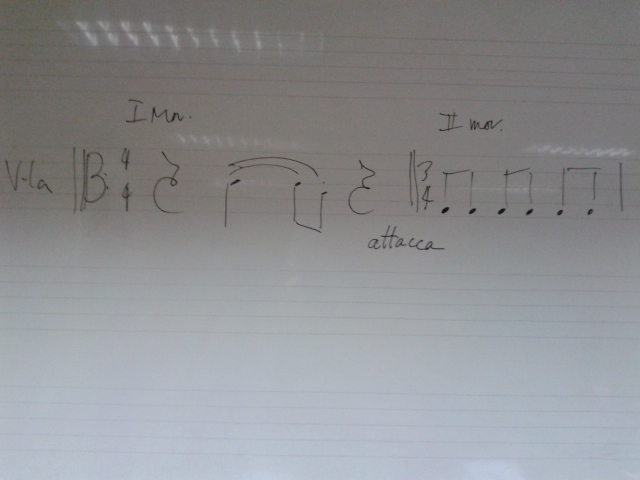 I Mov. II mov.
V-la 4 4 3 4
attacca